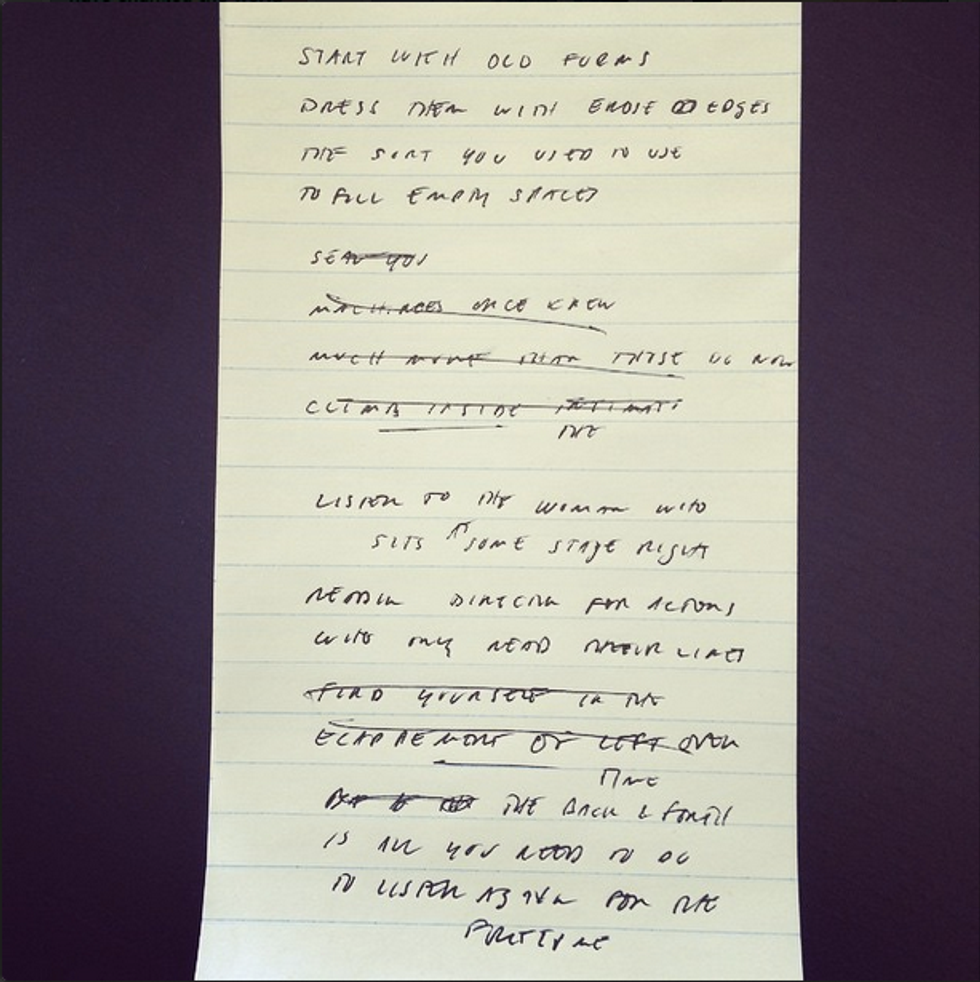 START WITH OLD FORMS
DRESS THEM WITH EROSE EDGES
THE SORT YOU USED TO USE
TO FILL EMPTY SPACES
SEAT YOU
MACHINES ONCE KNEW
MUCH MORE THAN THESE DO NOW
CLIMB INSIDE INTIMATE
THE
LISTEN TO THE WOMAN WHO
SITS SOME STAGE RIGHT
READING DIRECTION FOR ACTORS
WHO ONLY READ THEIR LINES
FIND YOURSELF IN THE
ESCAPEMENT OF LEFT OVER
TIME
THE BACK & FORTH
IS ALL YOU NEED TO DO
TO LISTEN AGAIN FOR THE
FIRST TIME